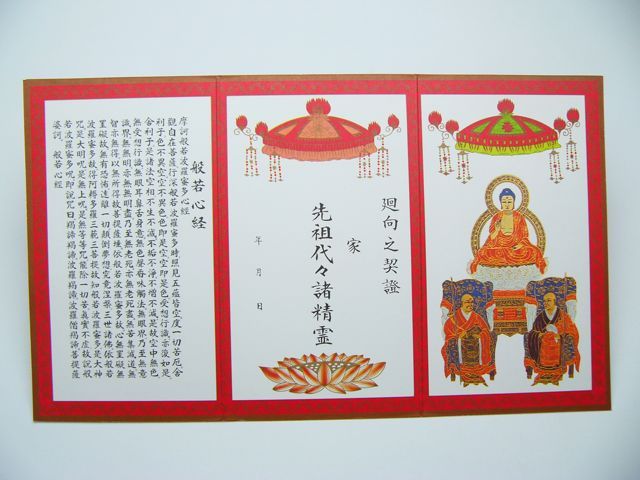 廻向之契證
家
先祖代々諸精霊
年 月 日
般若心経
摩訶般若波羅蜜多心經
觀自在菩薩行深般若波羅蜜多時照見五蘊皆空度一切苦厄舎
利子色不異空空不異色色即是空空即是色受想行識亦復如是
舎利子是諸法空相不生不滅不垢不淨不增不減是故空中無色
無受想行識無眼耳鼻舌身意無色聲香味觸法無眼界乃至無意
識界無無明亦無無明盡乃至無老死亦無老死盡無苦集滅道無
智亦無得以無所得故菩提薩埵依般若波羅蜜多故心無罣礙無
罣礙故無有恐怖遠離一切顛倒夢想究竟涅槃三世諸佛依般若
波羅蜜多故得阿耨多羅三藐三菩提故知般若波羅蜜多是大神
咒是大明咒是無上咒是無等等咒能除一切苦真實不虚故説般
若波羅蜜多咒即説咒曰羯諦羯諦波羅羯諦波羅僧羯諦菩提薩
婆訶 般若心経